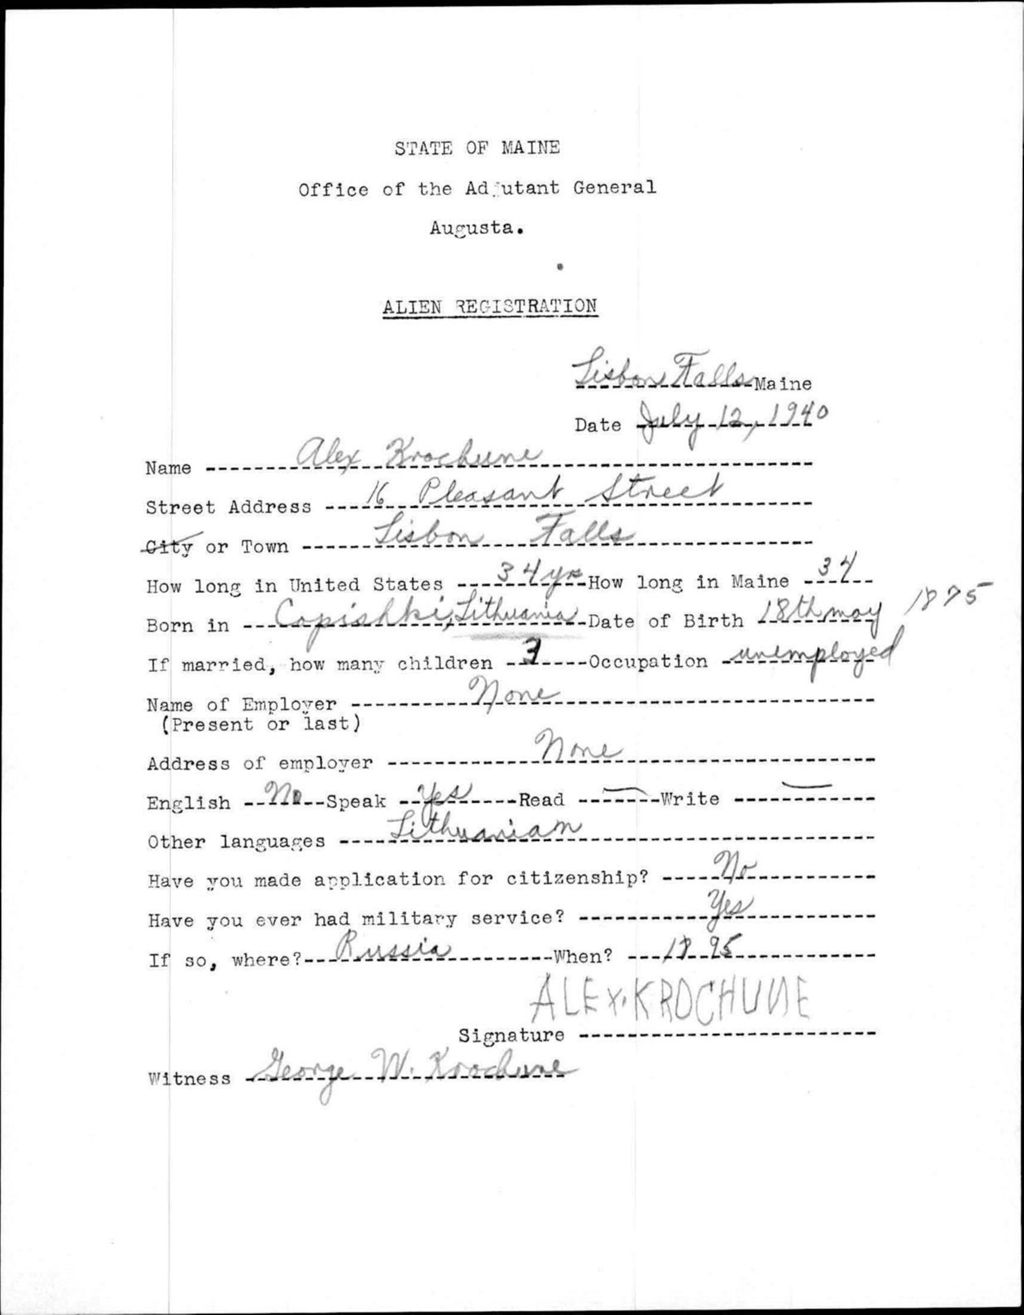 STATE OF MAINE
Office of the Adjutant General
Augusta.
ALIEN REGISTRATION
Lisbon Falls Maine
Date July 12, 1940
Name Alex Krochune
Street Address 16 Pleasant Street
City or Town Lisbon Falls
How long in United States 34 yrs How long in Maine 34
Born in Copishki, Lithuania Date of Birth 18th may 1875
If married, how many children 3 Occupation unemployed
Name of Employer None
(Present or last)
Address of employer None
English No Speak Yes Read — Write —
Other languages Lithuanian
Have you made application for citizenship? No
Have you ever had military service? Yes
If so, where? Russia When? 1895
ALEX. KROCHUNE
Signature
Witness George W. Krochune